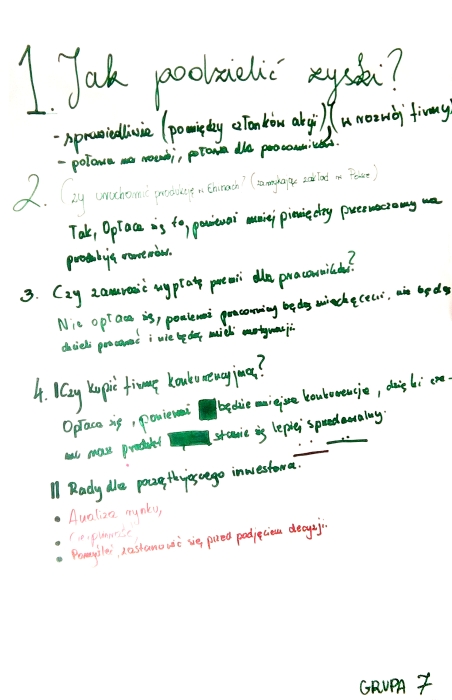 1. Jak podzielić zyski?
- sprawiedliwie (pomiędzy członków akcji) (w rozwój firmy)
- połowa na rozwój, połowa dla pracowników.
2. Czy uruchomić produkcję w Chinach? (zamykając zakład w Polsce)
Tak, Opłaca się to, ponieważ mniej pieniędzy przeznaczamy na
produkcję rowerów.
3. Czy zamrozić wypłatę premii dla pracowników?
Nie opłaca się, ponieważ pracownicy będą zniechęceni, nie będą
chcieli pracować i nie będą mieli motywacji.
4. Czy kupić firmę konkurencyjną?
Opłaca się, ponieważ będzie mniejsza konkurencja, dzięki cze-
mu nasz produkt stanie się lepiej sprzedawalny.
II Rady dla początkującego inwestora.
• Analiza rynku,
• Cierpliwość,
• Pomyśleć, zastanowić się przed podjęciem decyzji.
GRUPA 7